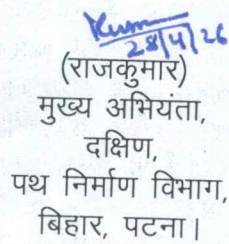 Kum
28/4/26
(राजकुमार)
मुख्य अभियंता,
दक्षिण,
पथ निर्माण विभाग,
बिहार, पटना।